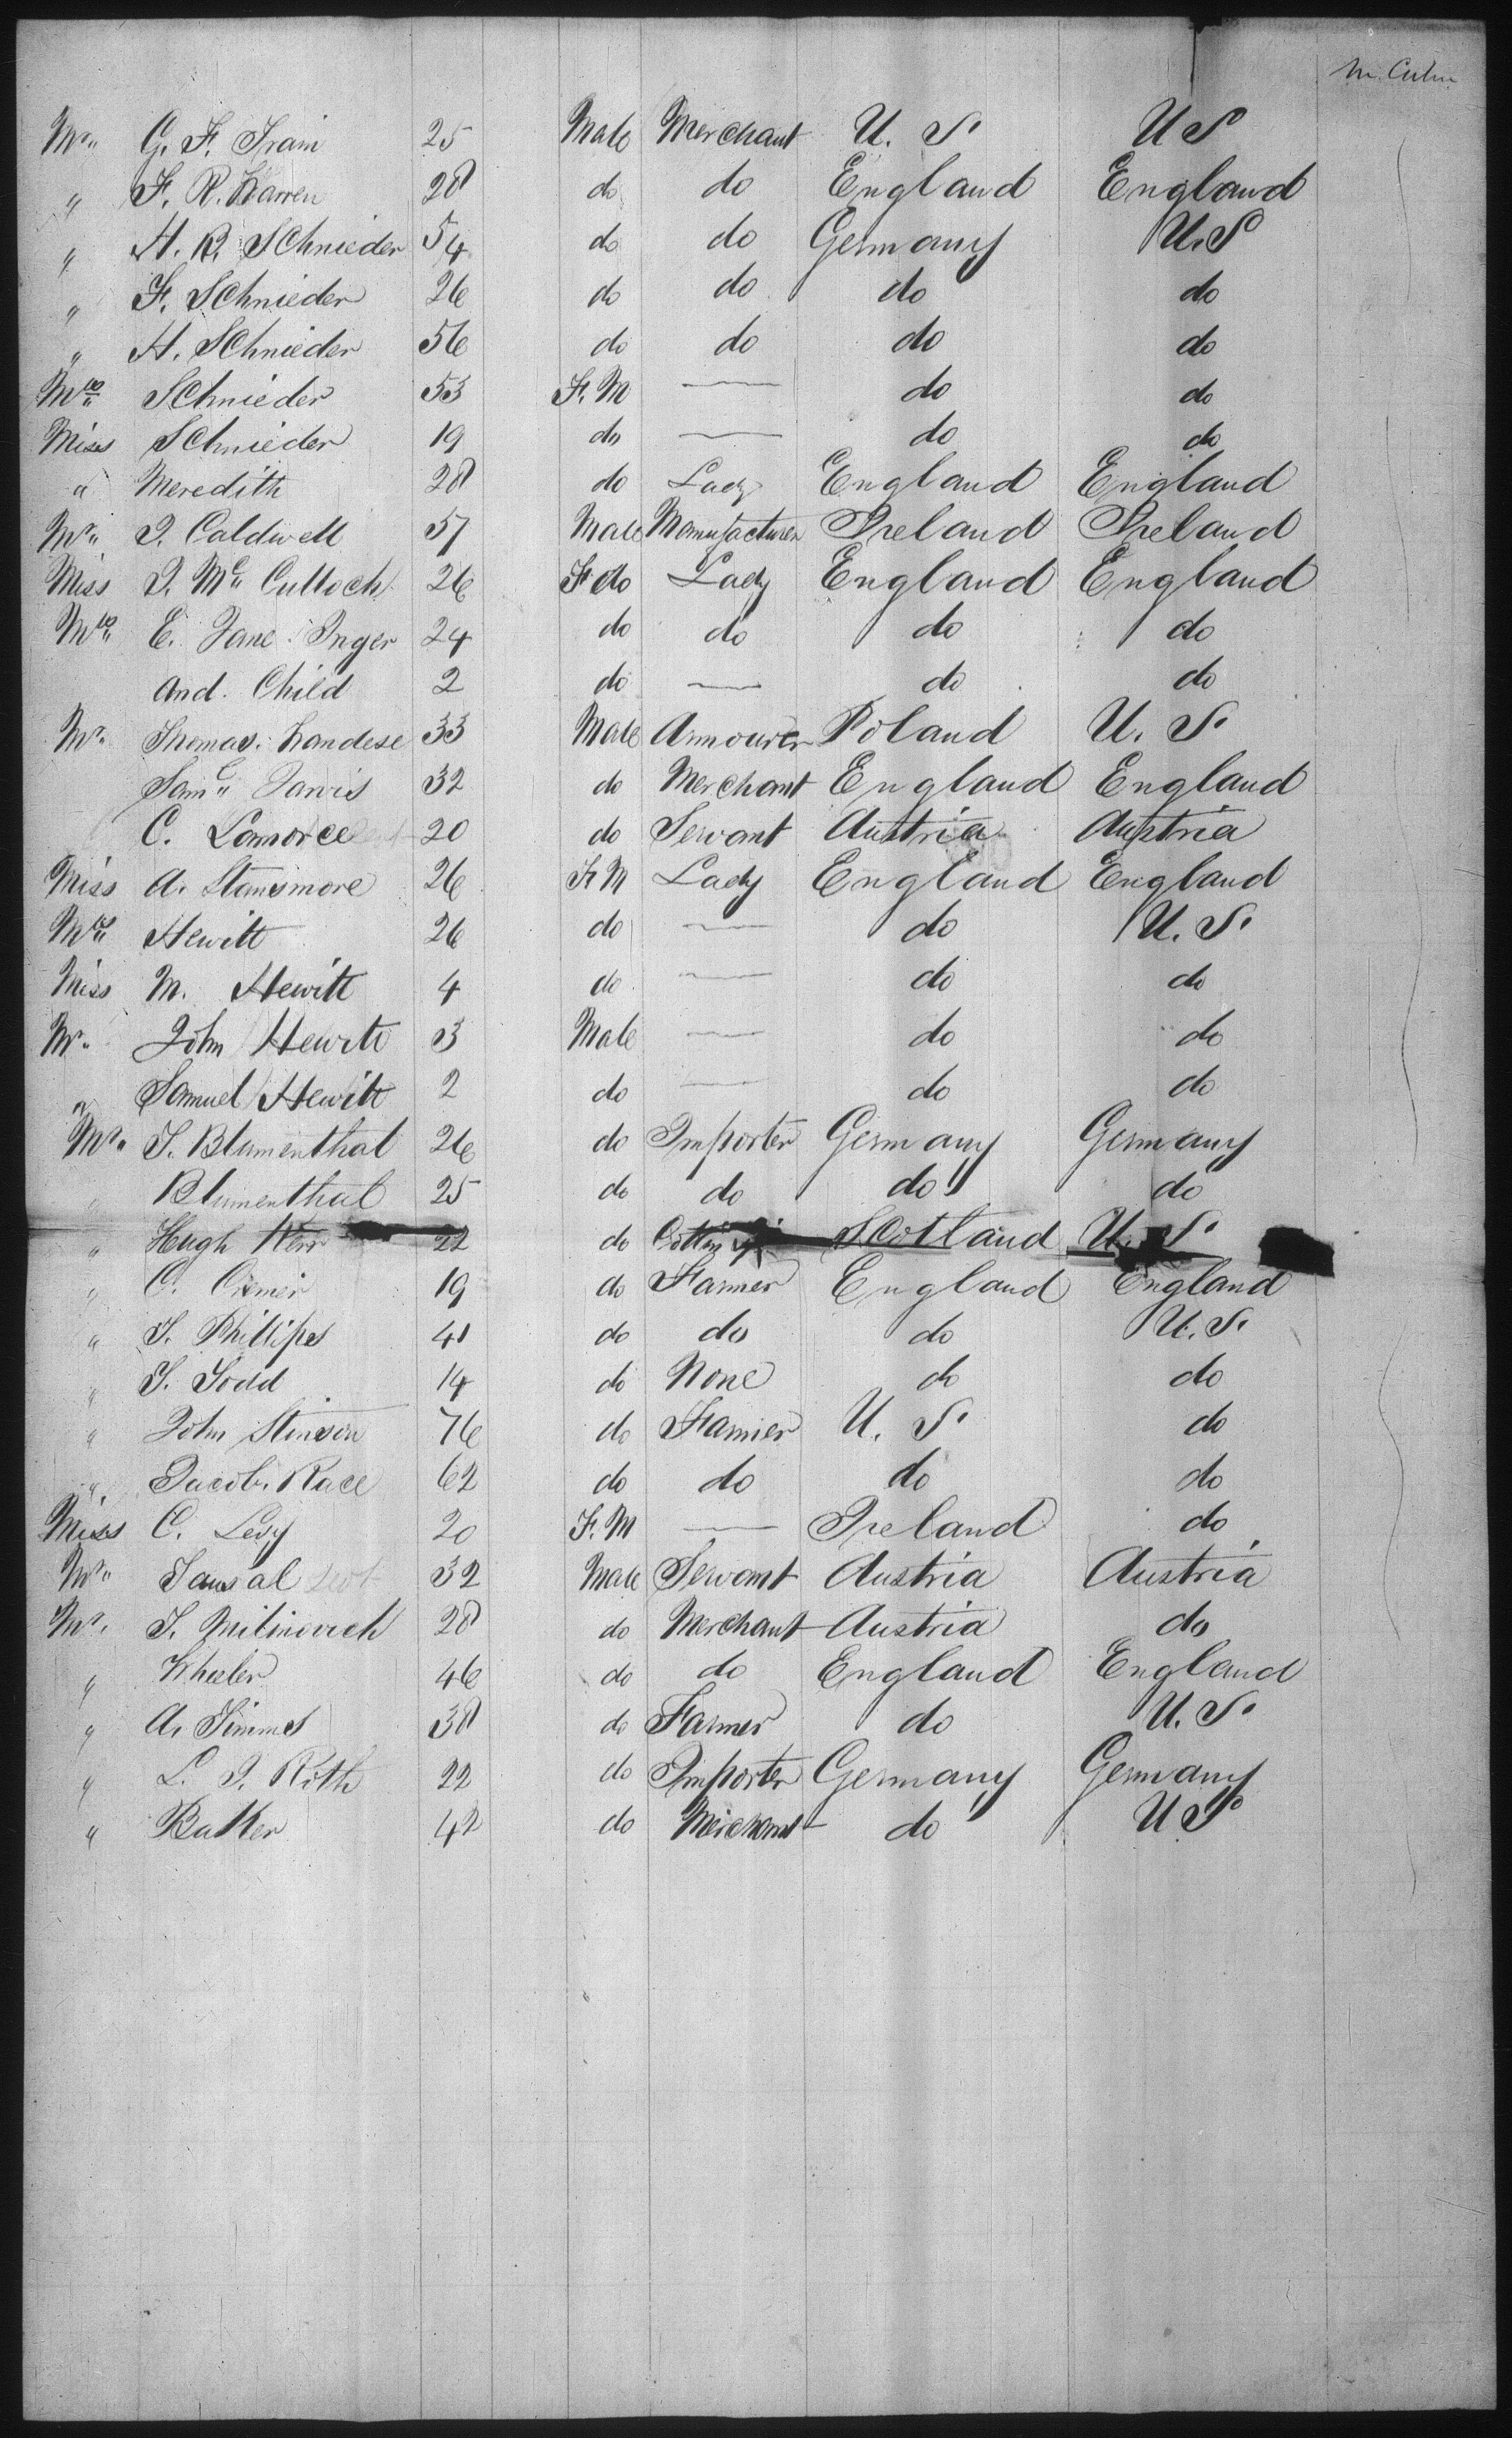 Mr. G. F. Train 25 Male Merchant U. S. U S
" F. R. Warren 28 do do England England
" H. R. Schnieder 54 do do Germany U.S
" F. Schnieder 26 do do do do
" H. Schnieder 56 do do do do
Mrs Schnieder 53 F. M — do do
Miss Schnieder 19 do — do do
" Meredith 28 do Lady England England
Mr. J. Caldwell 57 Male Manufacturer Ireland Ireland
Miss J. Mc Culloch 26 F do Lady England England
Mrs E. Jane Inger 24 do do do do
and Child 2 do — do do
Mr. Thomas. Landese 33 Male Armourer Poland U. S.
Saml Jarvis 32 do Merchant England England
C. Lamorce 20 do Servant Austria Austria
Miss A. Stansmore 26 F. M Lady England England
Mrs Hewitt 26 do — do U. S.
Miss M. Hewitt 4 do — do do
Mr. John Hewitt 3 Male — do do
" Samuel Hewitt 2 do — do do
Mr. S. Blumenthal 26 do Importer Germany Germany
" Blumenthal 25 do do do do
" Hugh Kerr 22 do Scotland U. S.
" C. 19 do Farmer England England
" S. Phillips 41 do do do U. S.
" S. Todd 14 do None do do
" John Stinson 76 do Farmer U. S. do
" Jacob. Race 62 do do do do
Miss C. Levy 20 F. M — Ireland do
Mr. 32 Male Servant Austria Austria
Mr. S. Milinovich 28 do Merchant Austria do
" Wheeler 46 do do England England
" A. Simms 38 do Farmer do U. S.
" L. J. Roth 22 do Importer Germany Germany
" Batker 42 do Merchant do U S